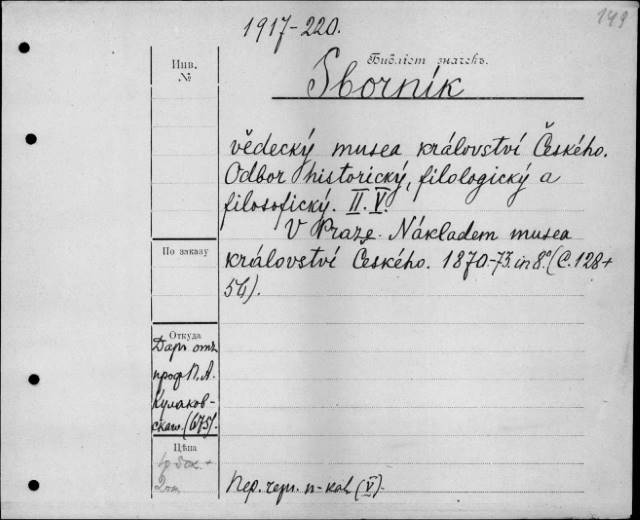 149
1917-220.
Библіот. значекъ.
Инв.
№
Sborník
vědecký musea království Českého.
Odbor historický, filologický a
filosofický. II. V.
V Praze. Nákladem musea
По заказу
království Českého. 1870-73. in 8º. (C. 128+
56).
Откуда
Даръ отъ
проф. П. А.
Кулаков-
скаго. (675).
Цѣна
2
Пер. черн. п-кол (V).